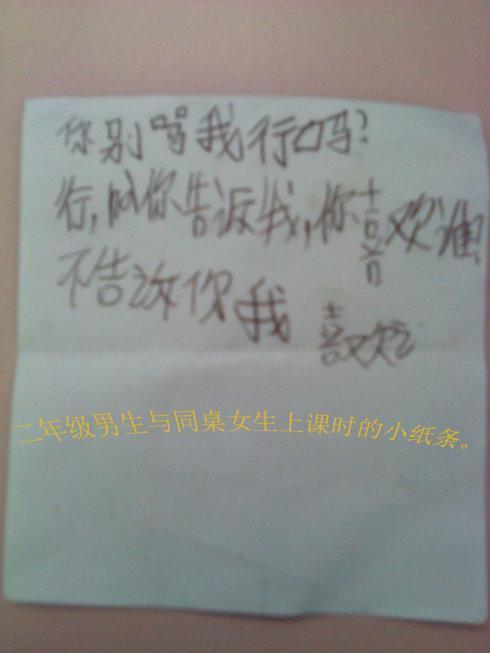 你别骂我行吗?
行,但你告诉我,你喜欢谁
不告诉你我 喜欢
二年级男生与同桌女生上课时的小纸条。